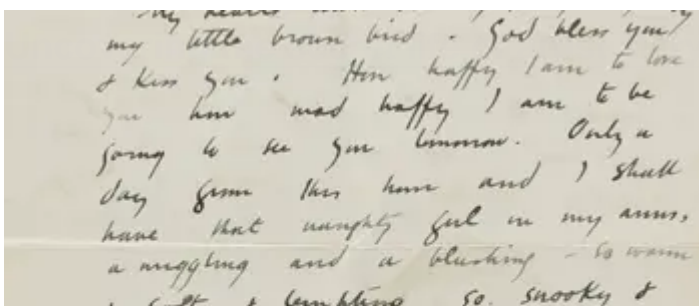 my little brown bird. God bless you
& kiss you. How happy I am to love
you how mad happy I am to be
going to see you tomorrow. Only a
day from this hour and I shall
have that naughty girl in my arms,
a niggling and a blushing - so warm
& tempting so snooky &